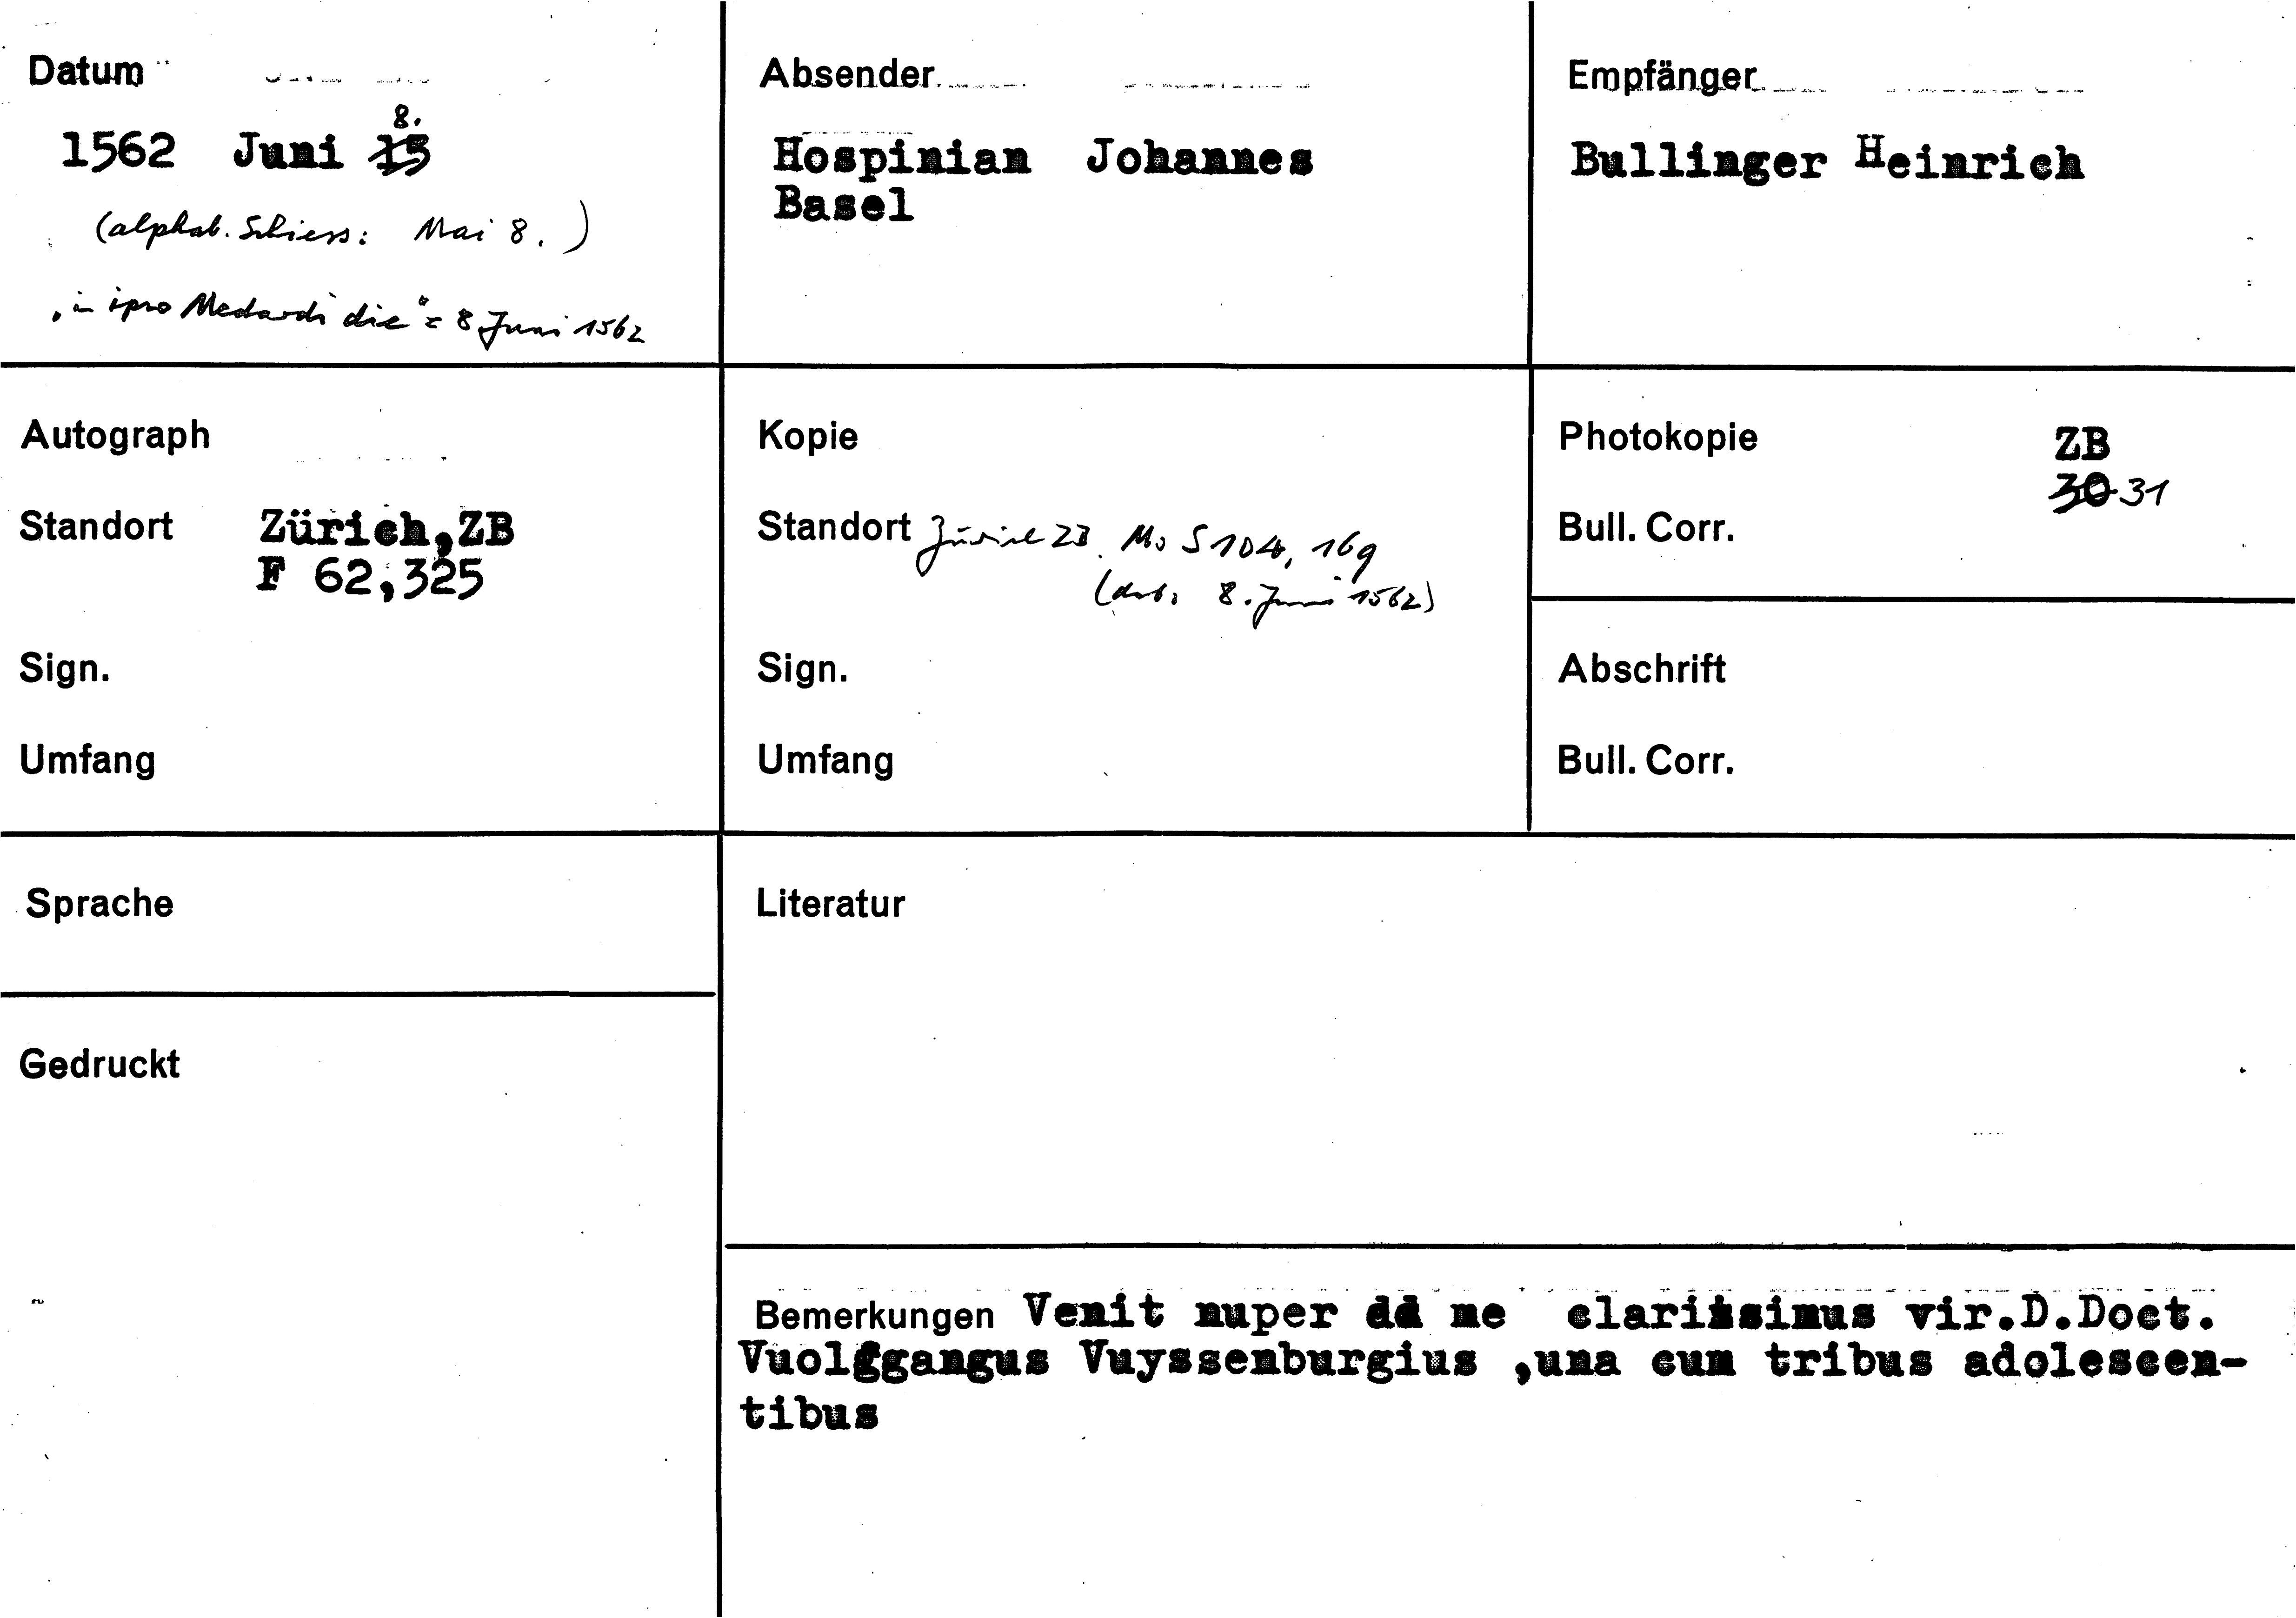 Datum
8.
1562 Juni 15
(alphab. Schiess: Mai 8.)
"in ipso Medardi die" = 8. Juni 1562
Absender
Hospinian Johannes
Basel
Empfänger
Bullinger Heinrich
Autograph
Standort Zürich,ZB
F 62,325
Sign.
Umfang
Kopie
Standort Zürich ZB. Ms S 104, 169
(dat. 8. Juni 1562)
Sign.
Umfang
Photokopie ZB
30 31
Bull. Corr.
Abschrift
Bull. Corr.
Sprache
Gedruckt
Literatur
Bemerkungen Venit nuper ad me clarissimus vir.D.Doct.
Vuolfgangus Vuyssenburgius ,una cum tribus adolescen-
tibus